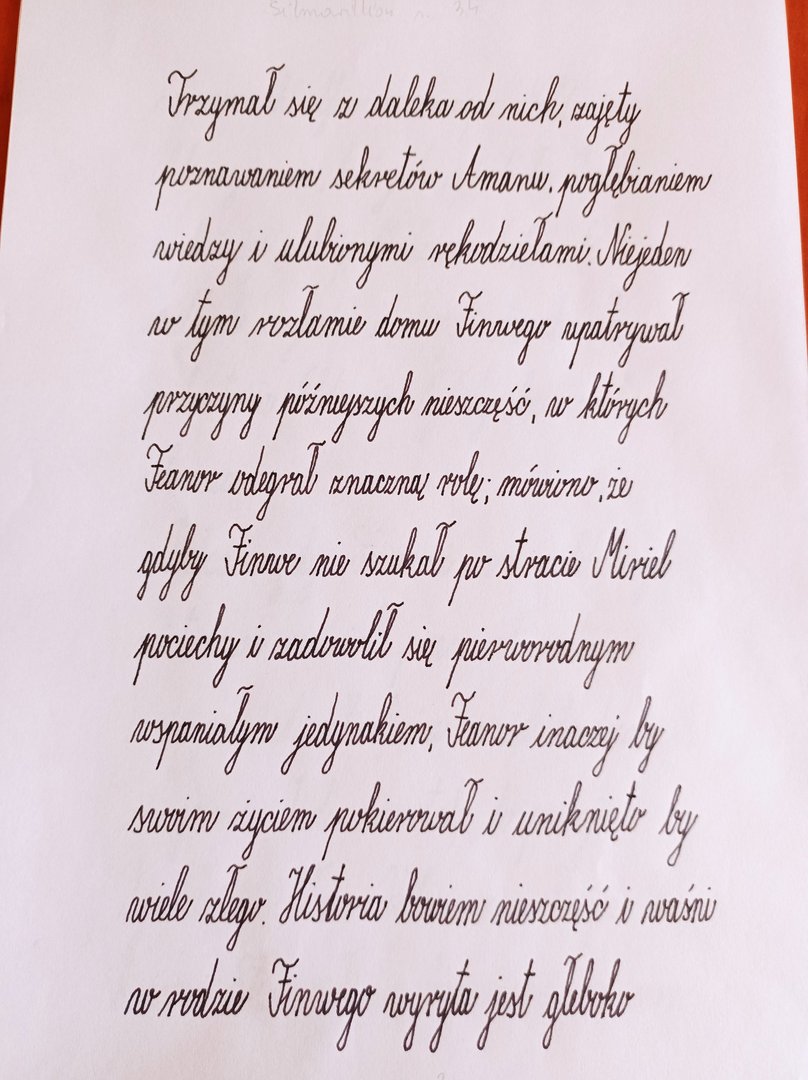 Silmarillion s. 34
Trzymał się z daleka od nich, zajęty
poznawaniem sekretów Amanu, pogłębianiem
wiedzy i ulubionymi rękodziełami. Niejeden
w tym rozłamie domu Finwego upatrywał
przyczyny późniejszych nieszczęść, w których
Feanor odegrał znaczną rolę; mówiono, że
gdyby Finwe nie szukał po stracie Miriel
pociechy i zadowolił się pierworodnym
wspaniałym jedynakiem, Feanor inaczej by
swoim życiem pokierował i uniknięto by
wiele złego. Historia bowiem nieszczęść i waśni
w rodzie Finwego wyryta jest głeboko